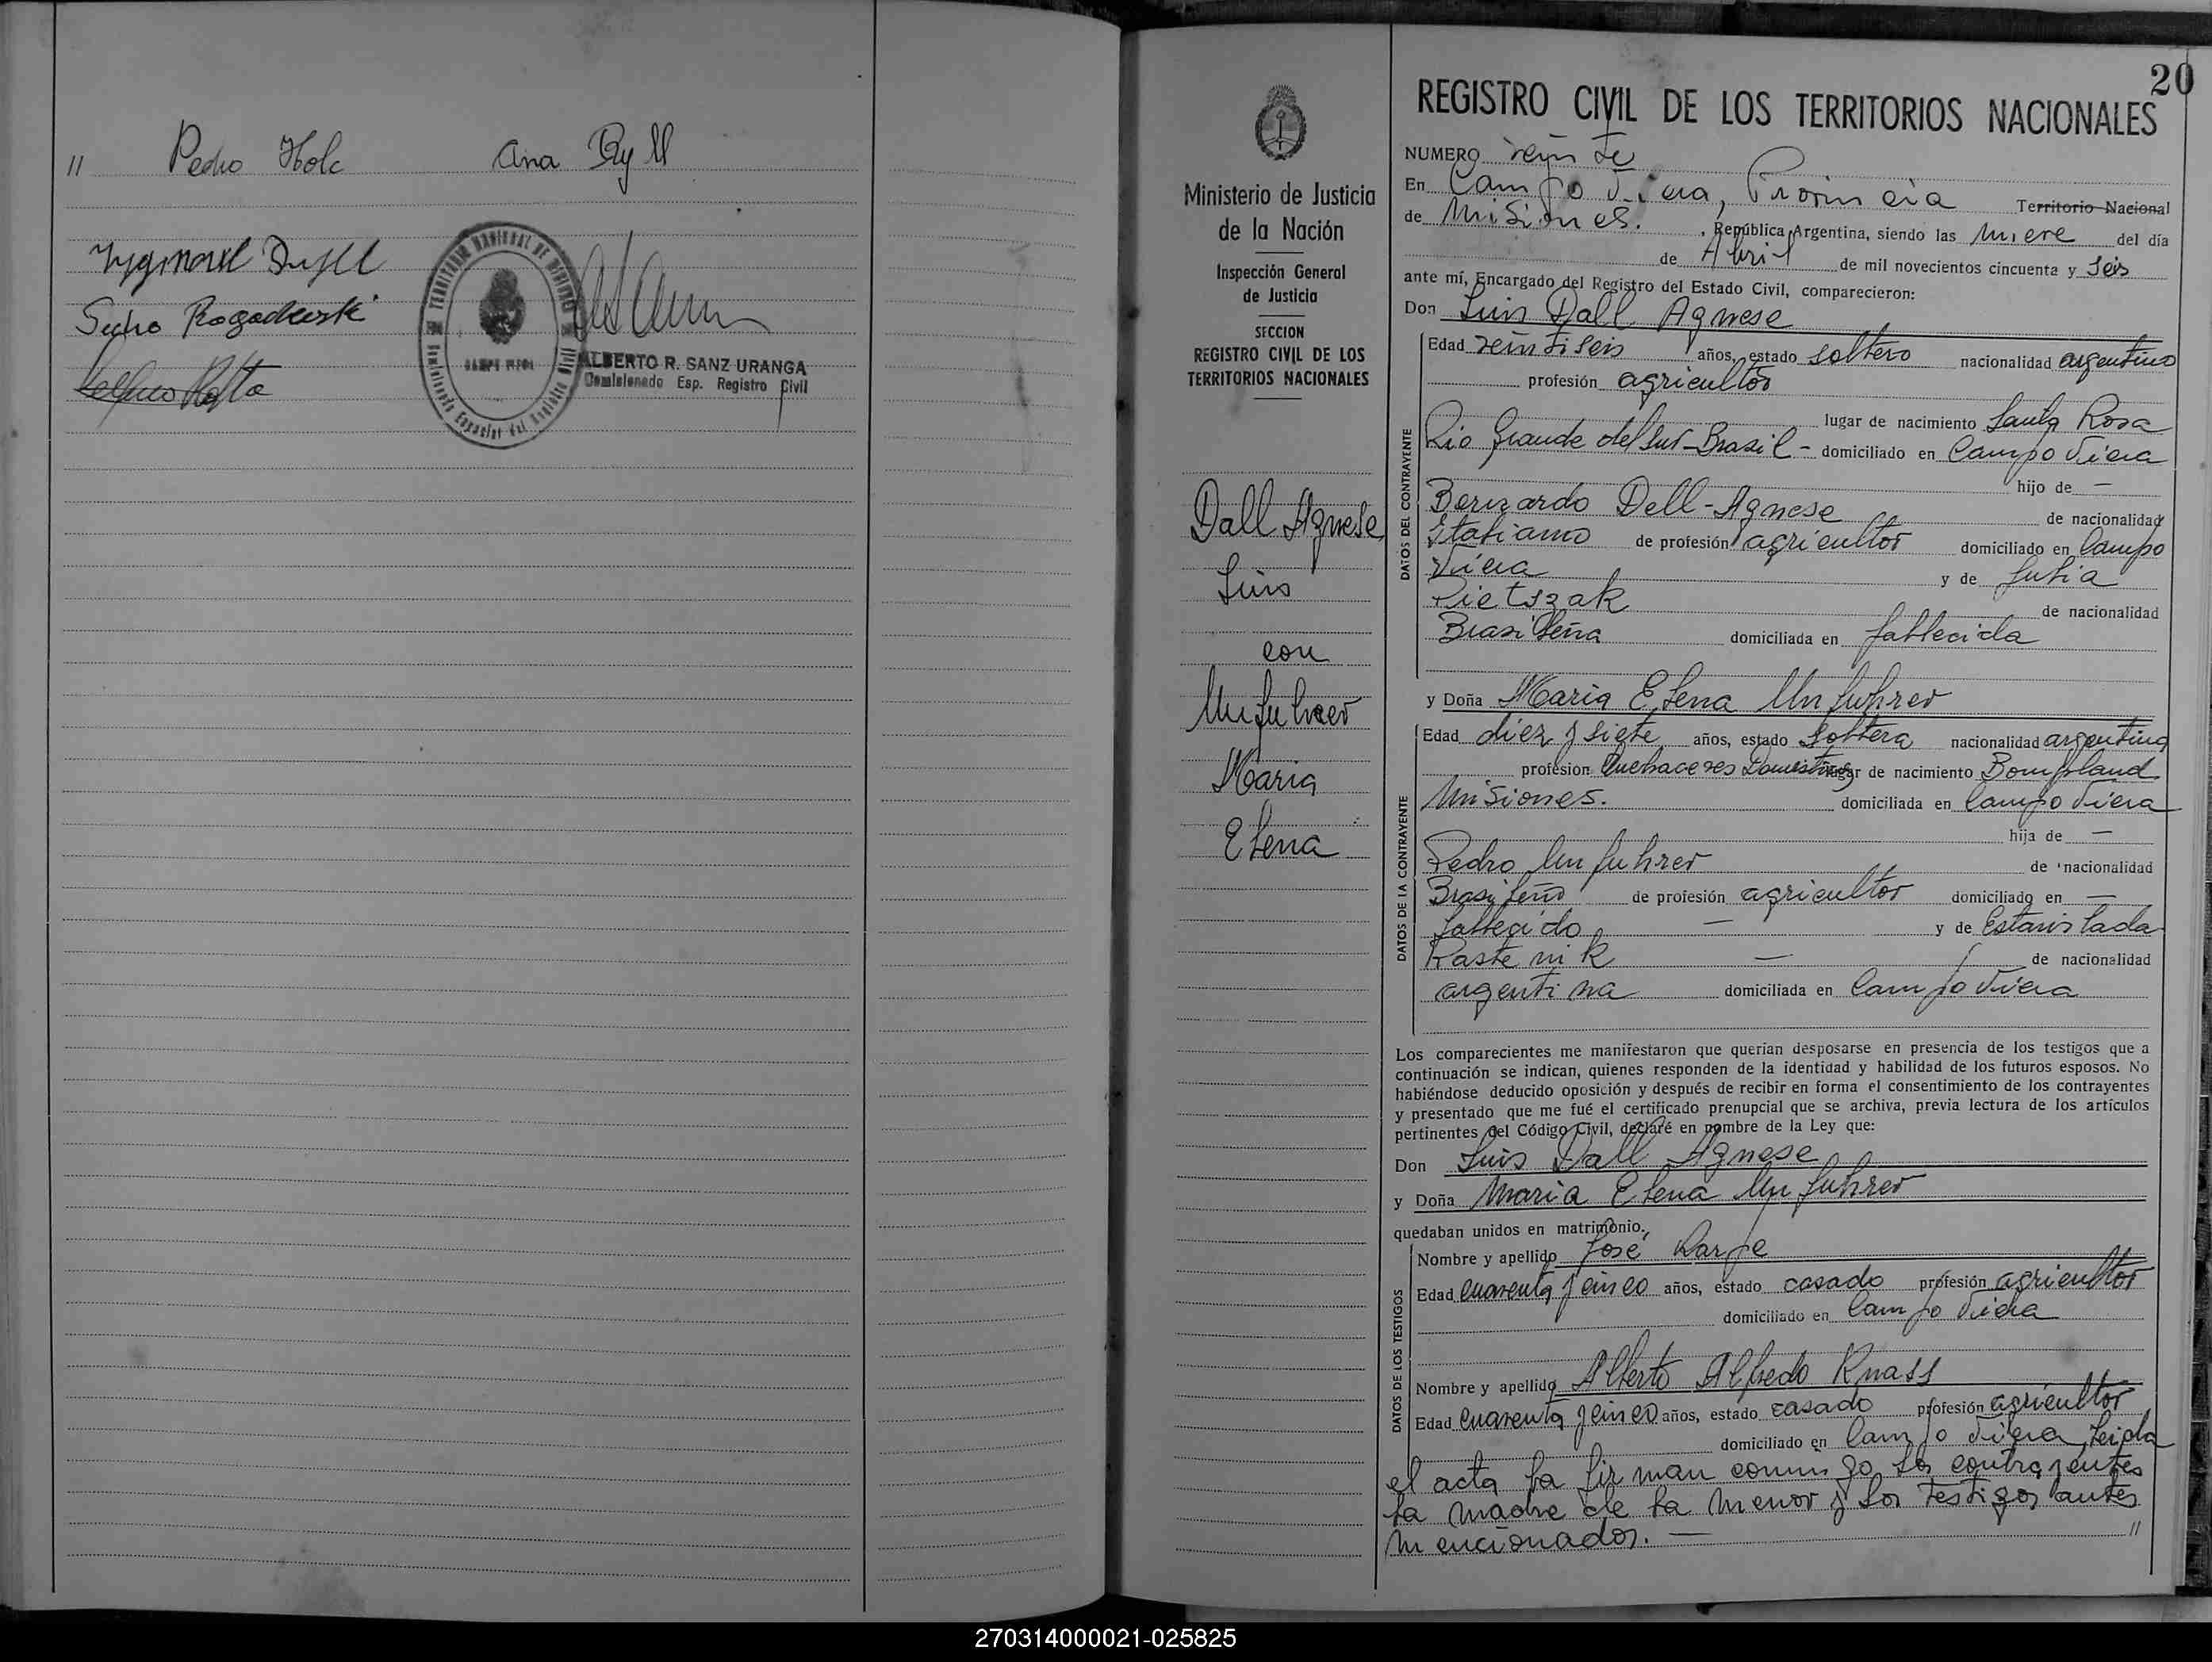 // Pedro Holc Ana Ryll
Pedro Rogaduski
TERRITORIO NACIONAL DE MISIONES
ALBERTO R. SANZ URANGA
Comisionado Esp. Registro Civil
20
Ministerio de Justicia
de la Nación
Inspección General
de Justicia
SECCION
REGISTRO CIVIL DE LOS
TERRITORIOS NACIONALES
Dall Agnese
Luis
con
Unfuhrer
Maria
Elena
REGISTRO CIVIL DE LOS TERRITORIOS NACIONALES
NUMERO veinte
En Campo Viera, Provincia Territorio Nacional
de Misiones. , República Argentina, siendo las nueve del día
de Abril de mil novecientos cincuenta y Seis
ante mí, Encargado del Registro del Estado Civil, comparecieron:
Don Luis Dall Agnese
Edad veintiseis años, estado soltero nacionalidad argentino
profesión agricultor
lugar de nacimiento Santa Rosa
DATOS DEL CONTRAYENTE
Rio Grande del Sur-Brasil - domiciliado en Campo Viera
hijo de —
Bernardo Dell-Agnese de nacionalidad
Italiano de profesión agricultor domiciliado en Campo
Viera y de Julia
Pietszak de nacionalidad
Brasileña domiciliada en fallecida
y Doña Maria Elena Unfuhrer
Edad diez y siete años, estado Soltera nacionalidad argentina
profesion Quehaceres Domesticos lugar de nacimiento Bompland
Misiones. domiciliada en Campo Viera
hija de —
DATOS DE LA CONTRAYENTE
Pedro Unfuhrer de nacionalidad
Brasileño de profesión agricultor domiciliado en —
fallecido — y de Estanislada
Kastenik — de nacionalidad
argentina domiciliada en Campo Viera
Los comparecientes me manifestaron que querían desposarse en presencia de los testigos que a
continuación se indican, quienes responden de la identidad y habilidad de los futuros esposos. No
habiéndose deducido oposición y después de recibir en forma el consentimiento de los contrayentes
y presentado que me fué el certificado prenupcial que se archiva, previa lectura de los artículos
pertinentes del Código Civil, declaré en nombre de la Ley que:
Don Luis Dall Agnese
y Doña Maria Elena Unfuhrer
quedaban unidos en matrimonio.
Nombre y apellido José Karpe
Edad cuarenta y cinco años, estado casado profesión agricultor
domiciliado en Campo Viera
DATOS DE LOS TESTIGOS
Nombre y apellido Alberto Alfredo Knass
Edad cuarenta y cinco años, estado casado profesión agricultor
domiciliado en Campo Viera, leida
el acta la firman conmigo los contrayentes
la madre de la menor y los testigos antes
mencionados. — //
270314000021-025825